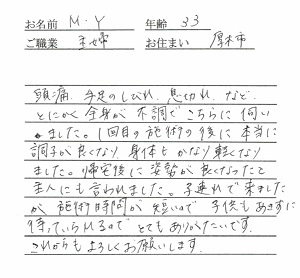 お名前 M・Y 年齢 33
ご職業 主婦 お住まい 厚木市
頭痛、手足のしびれ、息切れ、など
とにかく全身が不調でこちらに伺い
ました。1回目の施術の後に本当に
調子が良くなり身体もかなり軽くなり
ました。帰宅後に姿勢が良くなったと
主人にも言われました。子連れで来ました
が施術時間が短いので子供もあきずに
待っていられるのでとてもありがたいです。
これからもよろしくお願いします。